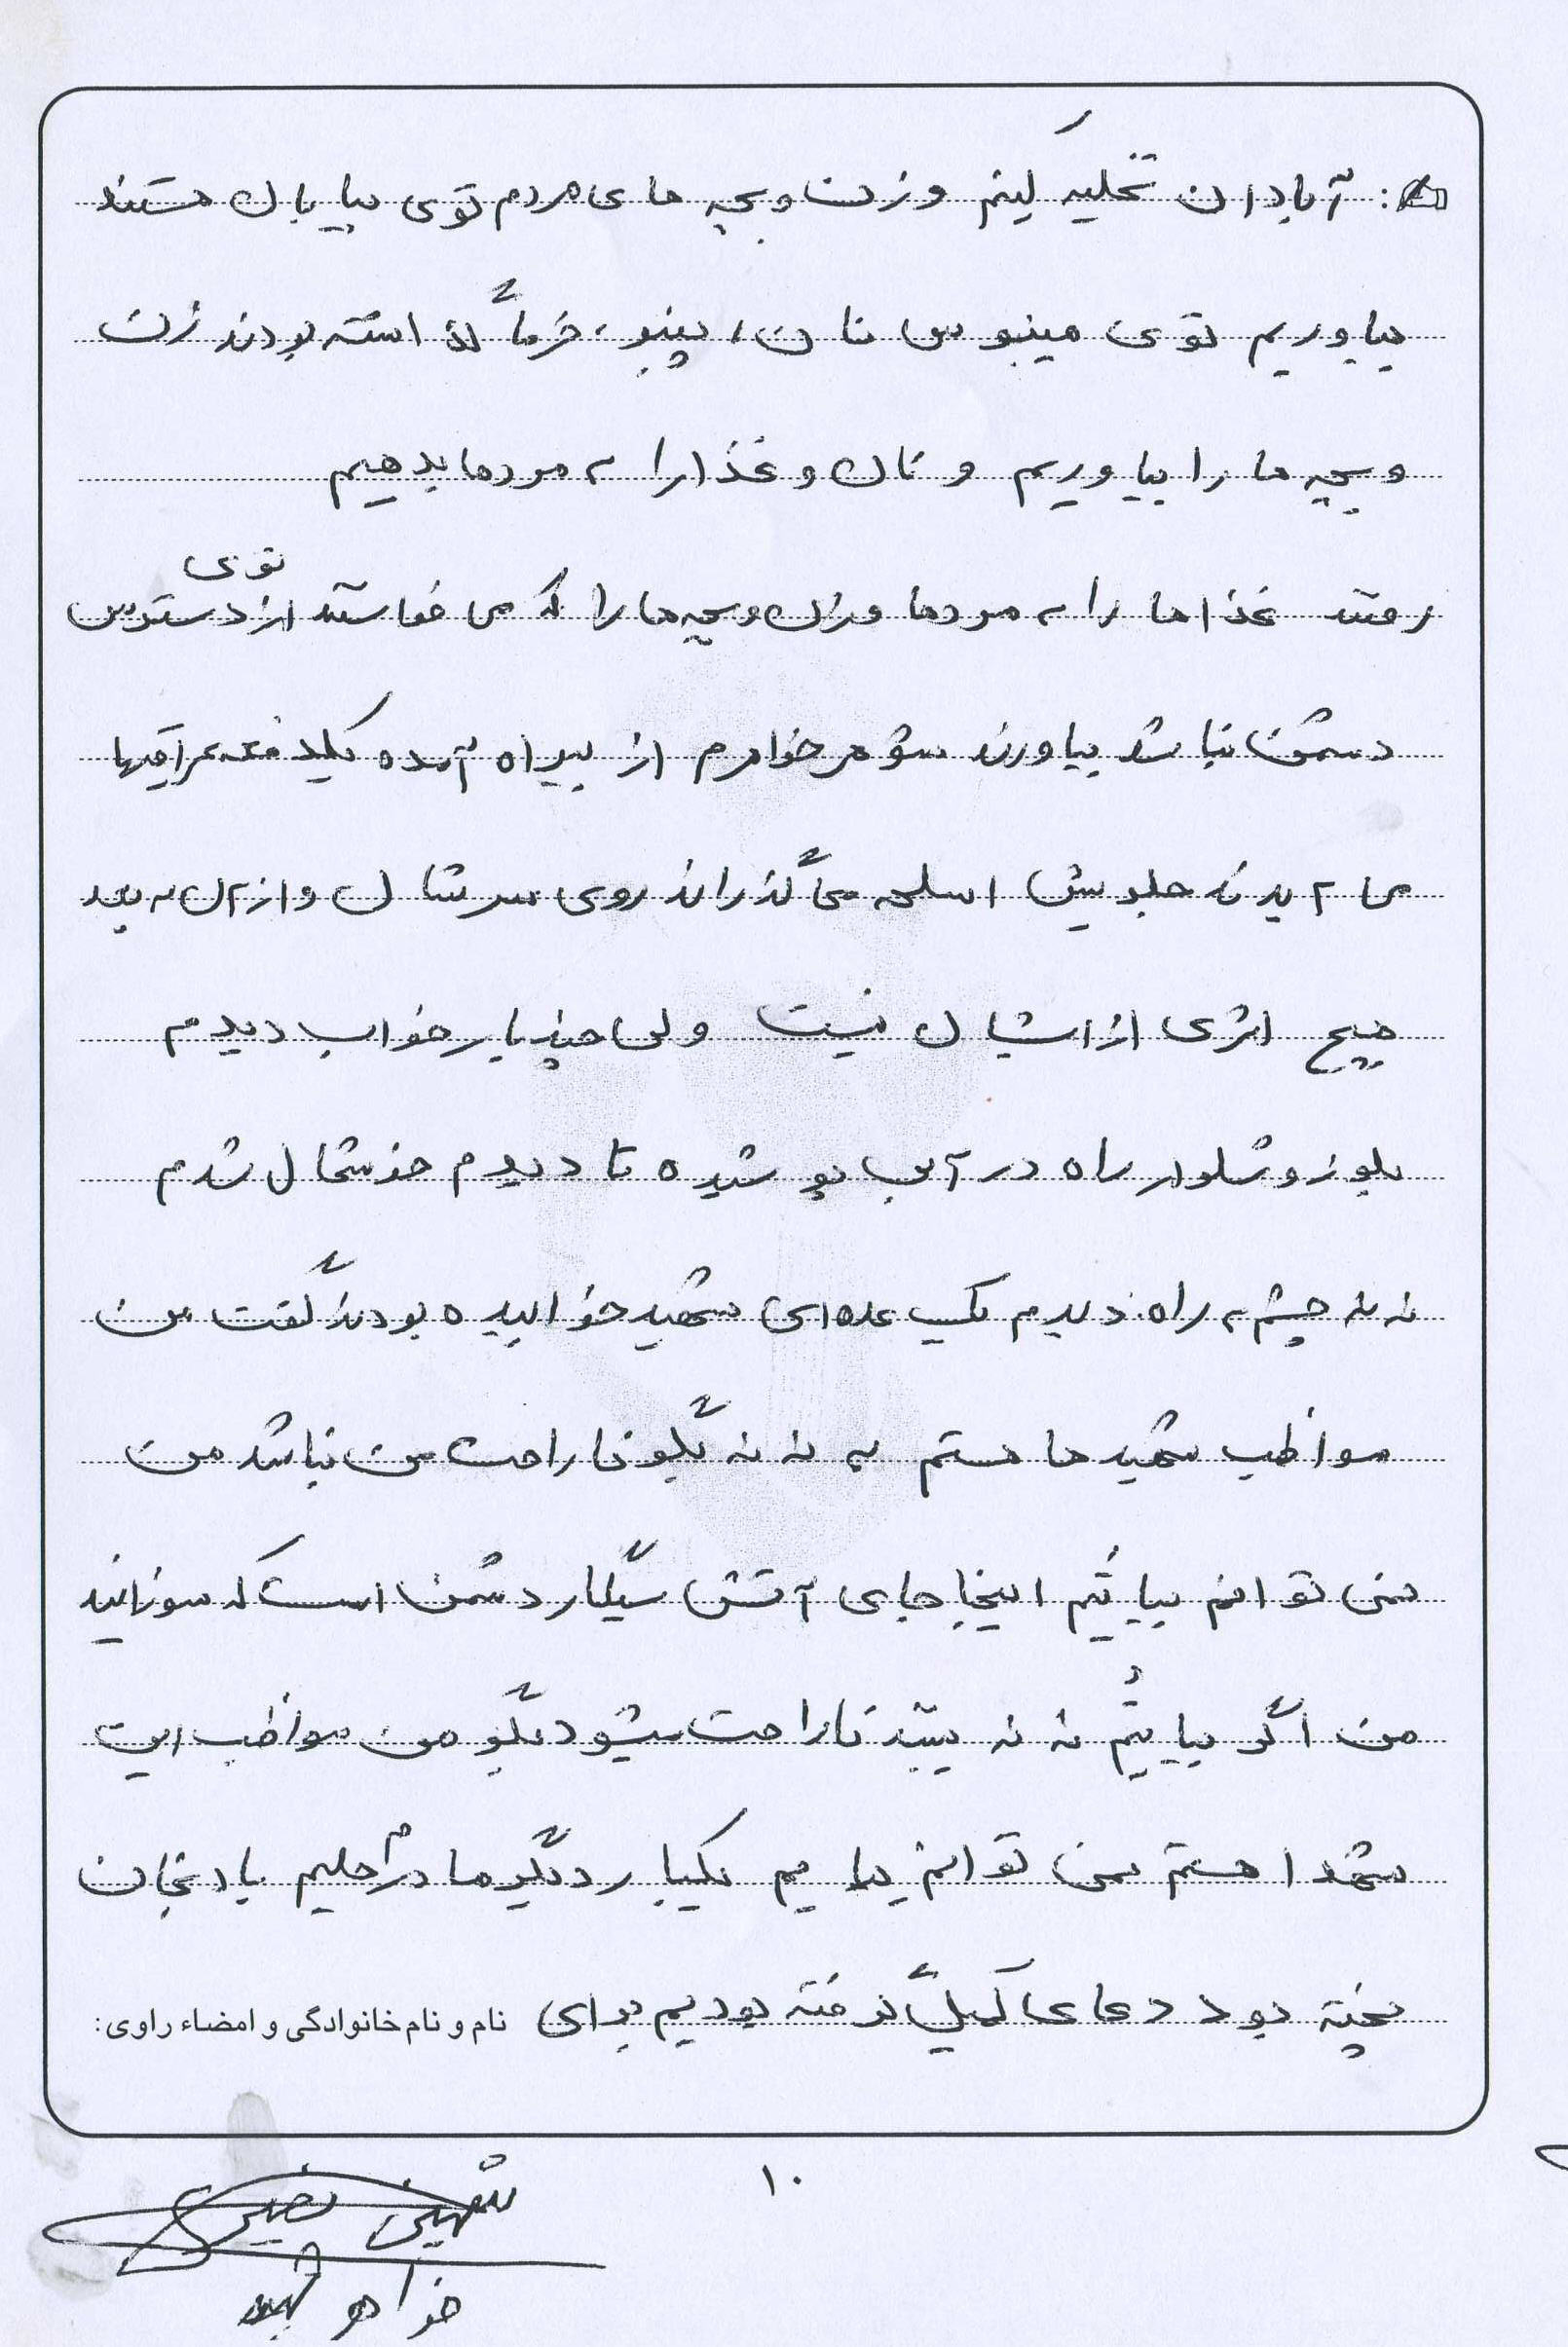 آبادان تخلیه کنیم و زن و بچه های مردم توی بیابان هستند
بیاوریم توی مینبوس نان، پنیر، خرما گذاشته بودند زن
و بچه ها را بیاوریم و نان و غذا را به مردها بدهیم
رفتند غذاها را به مردها و زن و بچه ها را که می خواستند از توی دسترس
دشمن نباشد بیاورند شوهر خواهرم از بیراه آمده یکدفعه عراقیها
می آیدند جلویش اسلحه می گذراند روی سرشان و از آن به بعد
هیچ اثری از ایشان نیست ولی چند بار خواب دیدم
بلوز و شلوار راه در آبی پوشیده تا دیدم خوشحال شدم
نه نه چشم به راه دیدم یک عده ای شهید خوابیده بودند گفت من
مواظب شهیدها هستم به نه نه بگو ناراحت من نباشد من
نمی توانم بیائیم اینجا جای آتش سیگار دشمن است که سوزانید
من اگر بیایئم نه نه ببیند ناراحت میشود بگو من مواظب این
شهدا هستم نمی توانم بیایم یکبار دیگر مادرم حلیم بادنجان
پخته بود دعای کمیل گرفته بودیم برای
نام و نام خانوادگی و امضاء راوی:
۱۰
شهین نصیری
خواهر شهید